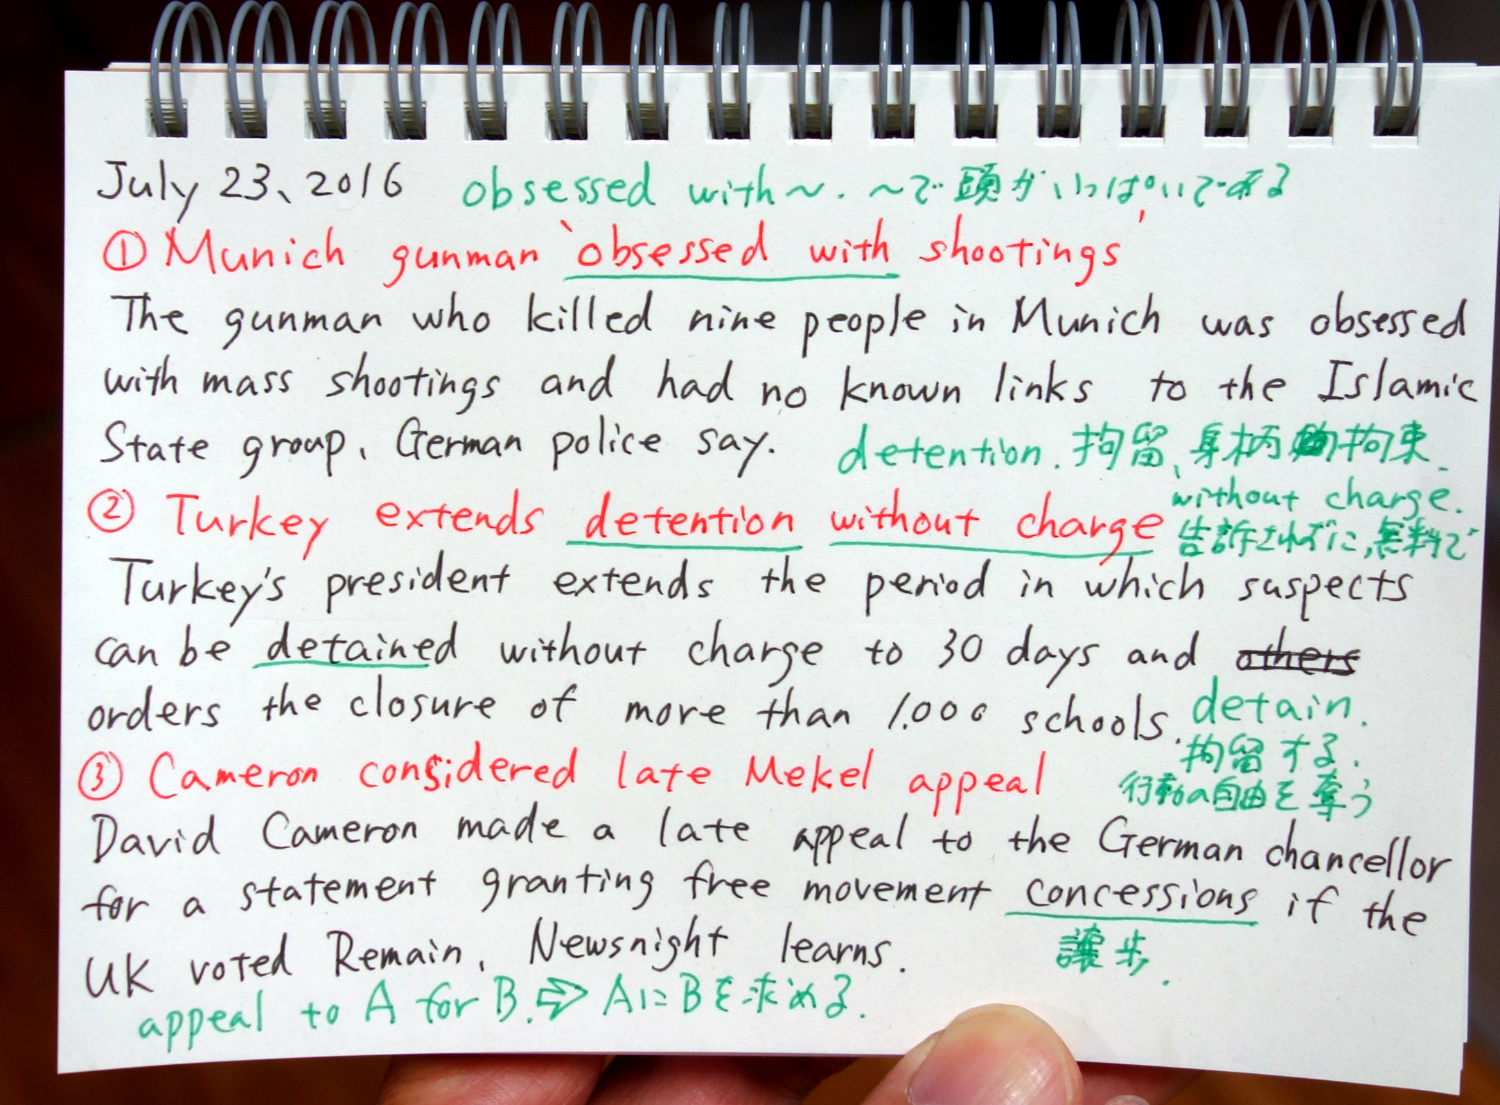 July 23、2016 obsessed with～. ～で頭がいっぱいである
① Munich gunman 'obsessed with shootings'
The gunman who killed nine people in Munich was obsessed
with mass shootings and had no known links to the Islamic
State group, German police say. detention. 拘留、身柄拘束.
② Turkey extends detention without charge
without charge.
告訴されずに,無料で
Turkey's president extends the period in which suspects
can be detained without charge to 30 days and others
orders the closure of more than 1.000 schools. detain.
拘留する.
③ Cameron considered late Mekel appeal
行動の自由を奪う
David Cameron made a late appeal to the German chancellor
for a statement granting free movement concessions if the
UK voted Remain, Newsnight learns.
譲歩.
appeal to A for B. ⇨ AにBを求める.